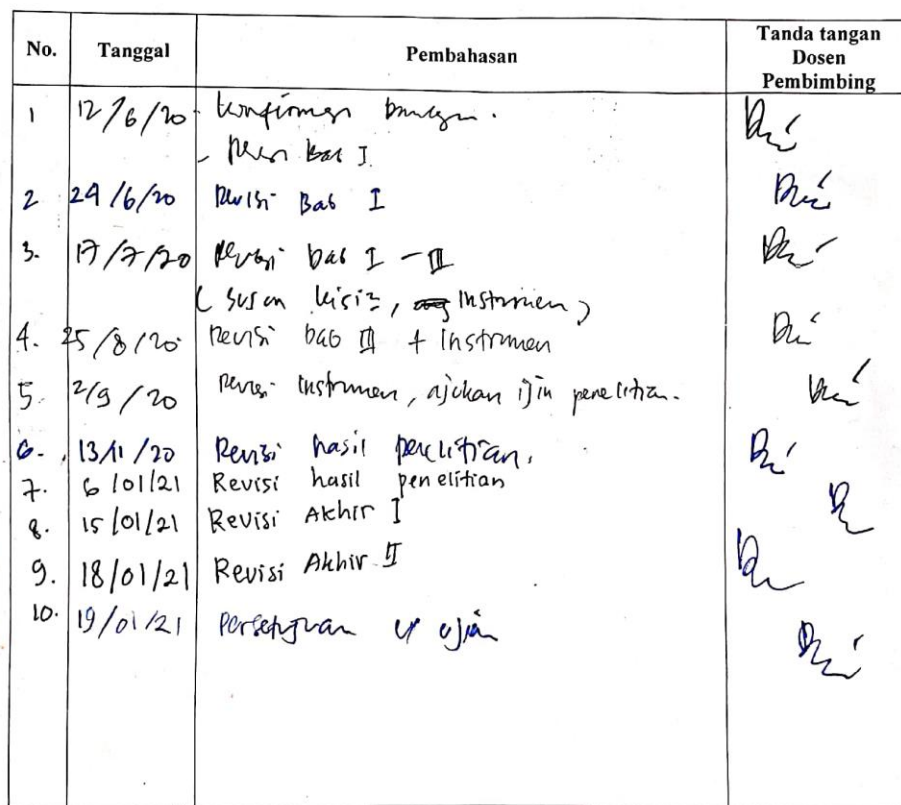 No. Tanggal Pembahasan Tanda tangan Dosen Pembimbing
1 12/6/20 - konfirmasi
- Revisi Bab I
2 24/6/20 Revisi Bab I
3. 17/7/20 Revisi bab I - III
(susun kisi2, Instrumen)
4. 25/8/20 Revisi bab III + Instrumen
5. 2/9/20 Revisi Instrumen, ajukan ijin penelitian.
6. 13/11/20 Revisi hasil penelitian.
7. 6/01/21 Revisi hasil penelitian
8. 15/01/21 Revisi Akhir I
9. 18/01/21 Revisi Akhir II
10. 19/01/21 Persetujuan u/ ujian